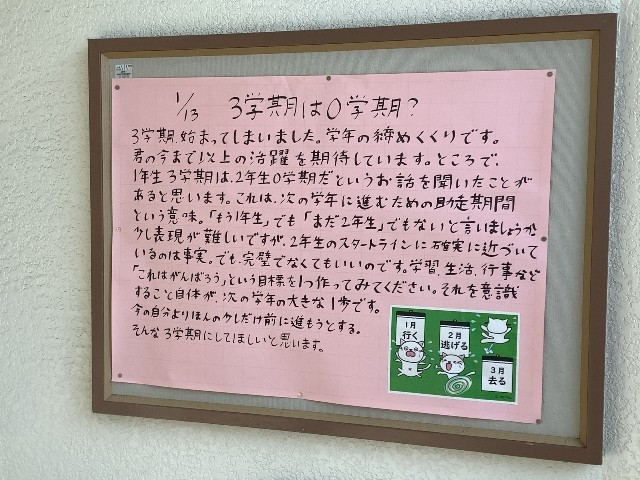 1/13 3学期は0学期?
3学期、始まってしまいました。学年の締めくくりです。
君の今まで以上の活躍を期待しています。ところで、
1年生3学期は、2年生0学期だというお話を聞いたことが
あると思います。これは、次の学年に進むための助走期間
という意味。「もう1年生」でも「まだ2年生」でもないと言いましょうか
少し表現が難しいですが、2年生のスタートラインに確実に近づいて
いるのは事実。でも、完璧でなくてもいいのです。学習、生活、行事など
「これはがんばろう」という目標を1つ作ってみてください。それを意識
すること自体が、次の学年の大きな1歩です。
今の自分よりほんの少しだけ前に進もうとする。
そんな3学期にしてほしいと思います。
1月
行く
2月
逃げる
3月
去る